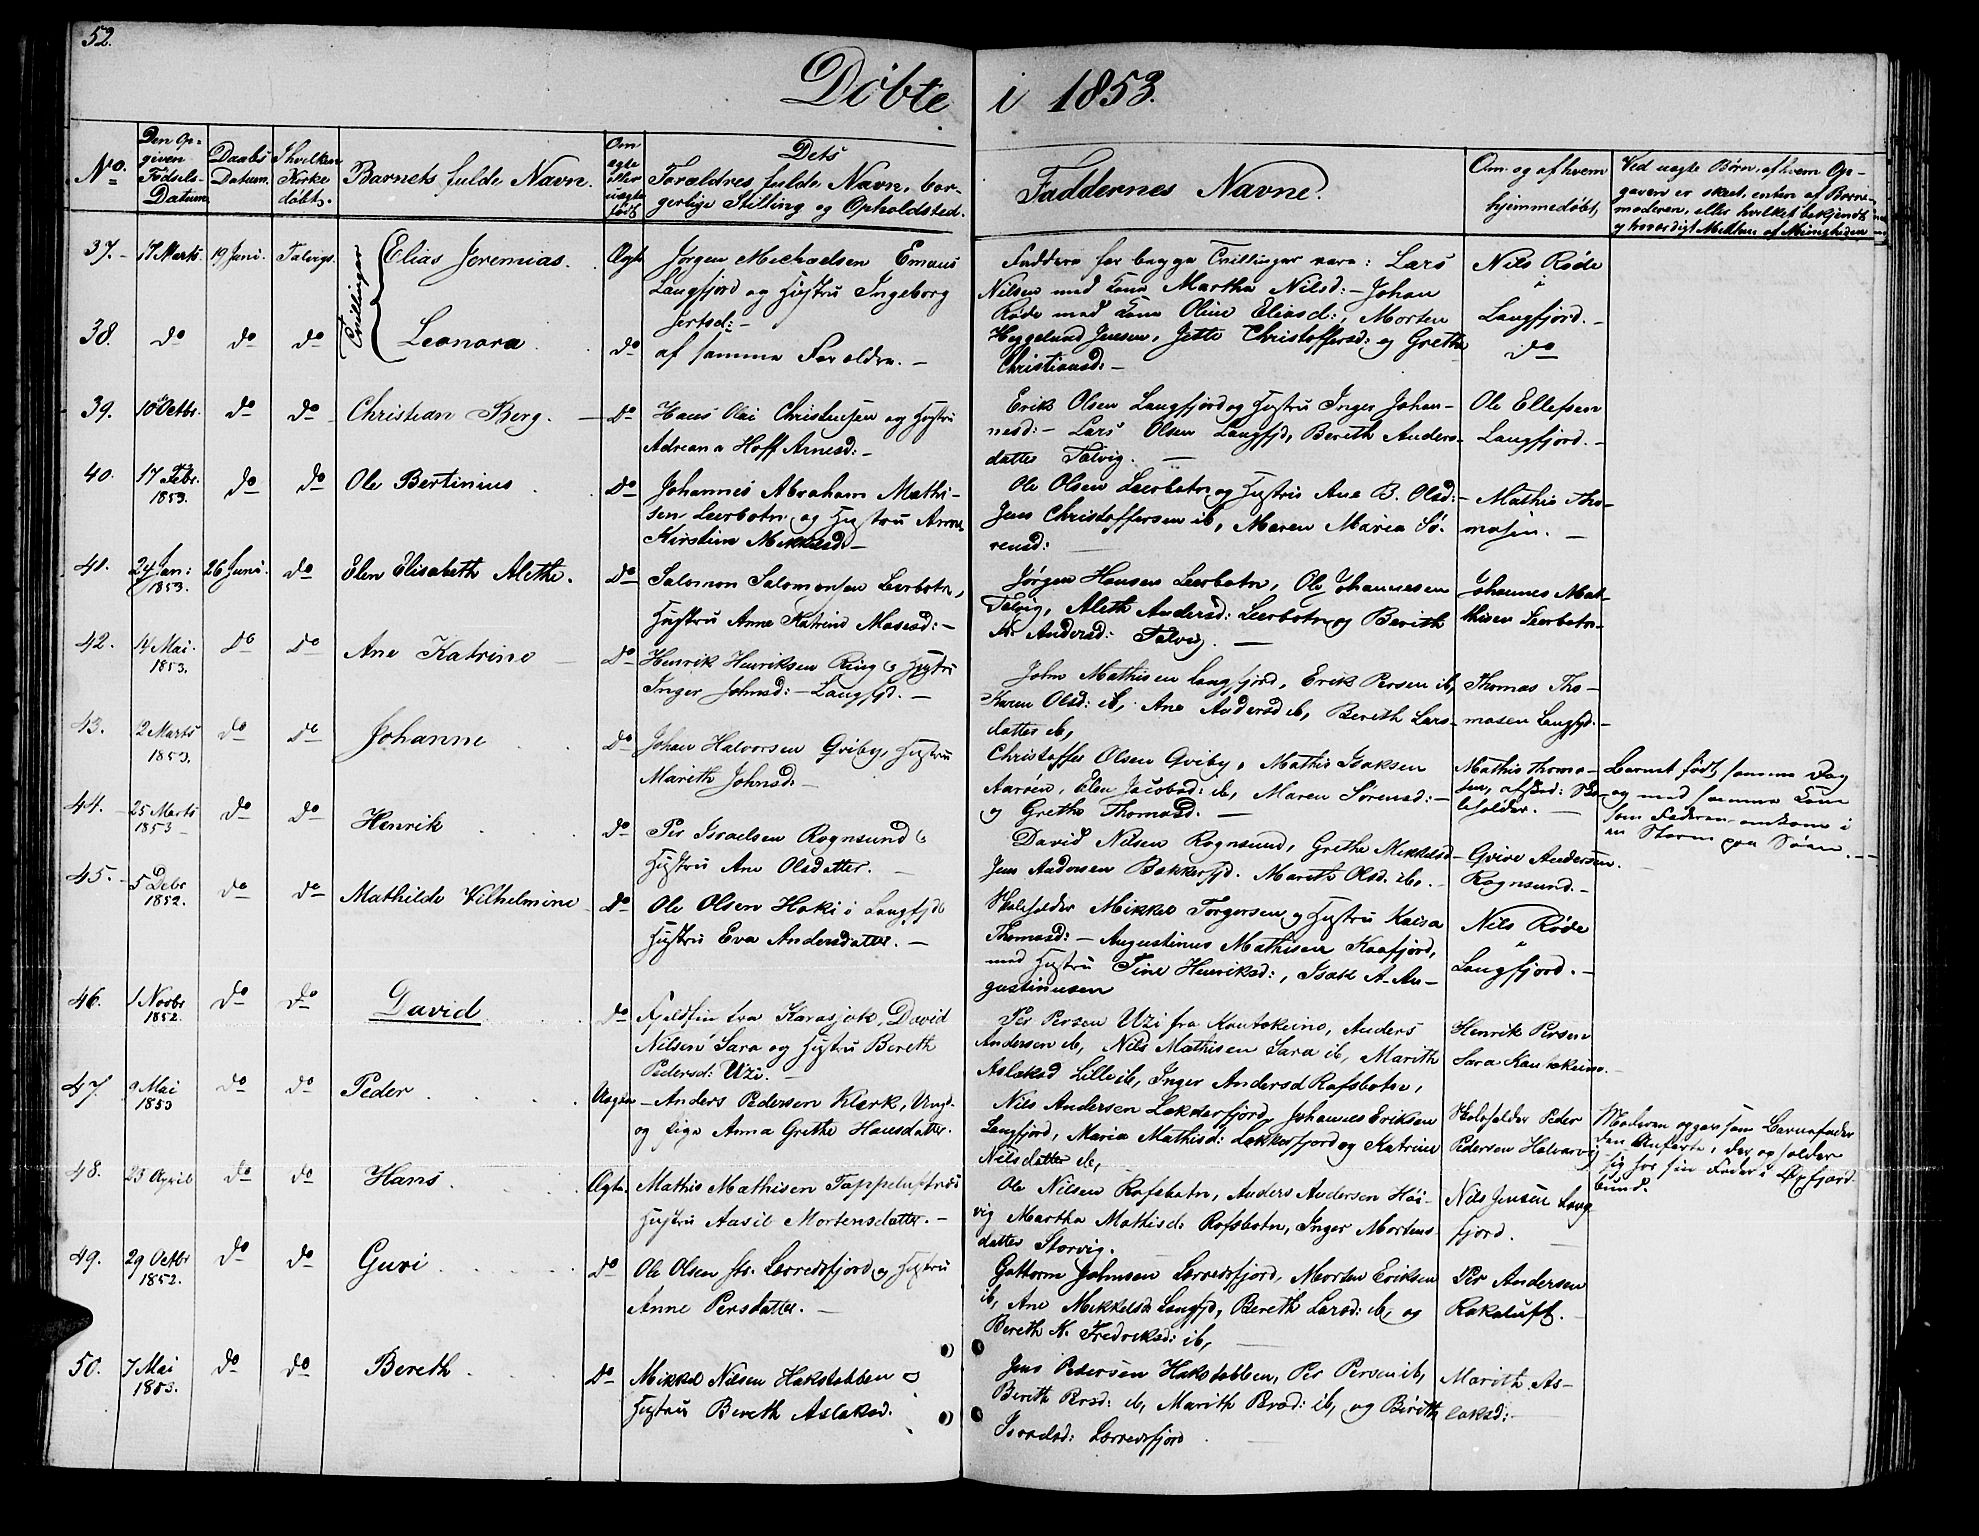 52.
Döbte i 1853.
No.
Den Op-
given
Födsels-
Datum
Daabs
Datum.
I hvilken
Kirke
döbt.
Barnets fulde Navn.
Om
ægte
eller
uægte
födt
Dets
Forældres fulde Navn, bor-
gerlige Stilling og Opholdsted.
Faddernes Navne.
Om og af hvem
hjemmedöbt,
Ved uægte Børn, af hvem Op-
gaven er skeet, enten af Barne-
moderen, eller hvilket bekjendt
37. 17 Marts. 19 Juni. Talvigs. Tvillinger Elias Jeremias. Ægte
Jørgen Michaelsen Emaus
Langfjord og Hustru Ingeborg
Faddere for begge Tvillinger vare: Lars
Nilsen med Kone Martha Nilsd: - Johan
Röde med Kone Oline Eliasd:, Morten
Heggelund Jensen, Jette Christoffersd: og Grethe
Christiansd: -
Nils Røde
Langfjord. -
38. do do do Leonora. do
af samme Forældre. -
do
39. 10 Octbr. do do Christian Berg. - Do
Hans Olai Christensen og Hustru
Adriana Hoff Arnesd: -
Erik Olsen Langfjord og Hustru Inger Johan-
nesd: - Lars Olsen Langfjd, Bereth Anders-
datter Talvig. -
Ole Ellefsen
Langfjord. -
40. 17 Febr. 1853. do do Ole Bertinius. Do
Johannes Abraham Mathi-
sen Leerbotn og Hustru Anne
Kirstine Mikkelsd -
Ole Olsen Leerbotn og Hustru Ane B. Olsd: -
Jens Christoffersen ib, Maren Maria Sö-
rensd:
Mathis Tho-
masen. -
41. 24 Jan: 1853. 26 Juni. do Elen Elisabeth Alethe. Do
Salomon Salomonsen Leerbotn,
Hustru Anne Katrine Mosesd: -
Jørgen Hansen Leerbotn, Ole Johannesen
Talvig, Aleth Andersd: Leerbotn og Berith
Andersd: Talvig. -
Johannes Mat-
thisen Leerbotn.
42. 14 Mai. 1853. Do do Ane Katrine - Do
Henrik Henriksen Ring & Hustru
Inger Johnsd: - Langfjd. -
John Mathisen Langfjord, Erik Persen ib,
Karen Olsd: ib, Ane Andersd ib, Bereth Lars-
datter ib,
Thomas Tho-
masen Langfjd. -
43. 2 Marts 1853. do do Johanne. Do
Johan Halvorsen Qviby, Hustru
Marith Johnsd: -
Christoffer Olsen Qviby, Mathis Isaksen
Aaröen, Elen Jacobsd: ib, Maren Sörensd: -
og Grethe Thomasd. -
Mathis Thoma-
sen,
leholder. -
Barnet födt samme Dag
og med samme Kone
som Faderen omkom i
en Storm paa Söen. -
44. 25 Marts 1853 do do Henrik. do
Per Israelsen Rognsund &
Hustru Ane Olsdatter. -
David Nilsen Rognsund, Grethe Mikkelsd -
Jens Andersen Bakkerfjd. Mareth Olsd. ib. -
Qvive Andersen.
Rognsund. -
45. 5 Debr 1852. do do Mathilde Vilhelmine Do
Ole Olsen Hoki i Langfjd &
Hustru Eva Andersdatter. -
Skoleholder Mikkel Torgersen og Hustru Kaisa
Thomasd: - Augustinus Mathisen Kaafjord,
med Hustru Tine Henriksd:, Isak A. Au-
gustinusen
Nils Røde
Langfjord. -
46. 1 Novbr 1852. do do David. Do
Fjeldfin fra Karasjok, David
Nilsen Sara og Hustru Bereth
Pedersd: Uzi. -
Per Persen Uzi fra Koutokeino, Anders
Andersen ib, Nils Mathisen Sara ib, Marith
Aslaksd Lille ib, Inger Andersd Rafsbotn,
Henrik Persen
Sara Koutokeino. -
47. Mai 1853 do do Peder. Uægte
- Anders Pedersen Klerk, Ungk.
og Pige Anna Grethe Hansdatter.
Nils Andersen Lakderfjord, Johannes Eriksen
Langfjord, Maria Mathisd: Lakkerfjord og Katrine
Nilsdatter ib,
Skoleholder Peder
Pedersen Halvarvig
Moderen opgav som Barnefader
den Anførte, der opholder
sig hos sin Fader i Øxfjord
bund.
48. 23 April do do Hans. Ægte.
Mathis Mathisen Tappeluft &
Hustru Aasil Mortensdatter. -
Ole Nilsen Rafsbotn, Anders Andersen Höi-
vig Martha Mathisd: Rafsbotn, Inger Mortens-
datter Storvig. -
Nils Jensen Lang-
fjord.
49. 29 Octbr 1852. do do Guri. do
Ole Olsen Lerredsfjord og Hustru
Anne Persdatter. -
Guttorm Johnsen Lerredsfjord, Morten Eriksen
ib, Ane Mikkelsd Langfjd, Bereth Larsd: ib, og
Bereth N. Fredriksd: ib,
Per Andersen
Rakaluft. -
50. 7 Mai 1853. do do Bereth. Do
Mikkel Nilsen Hakstabben &
Hustru Bereth Aslaksd.
Jens Pedersen Hakstabben, Per Persen ib,
Bereth Persd: ib, Marith Prsd: ib, og Birith
Israelsd: Lerredsfjord.
Marith As-
laksd: -